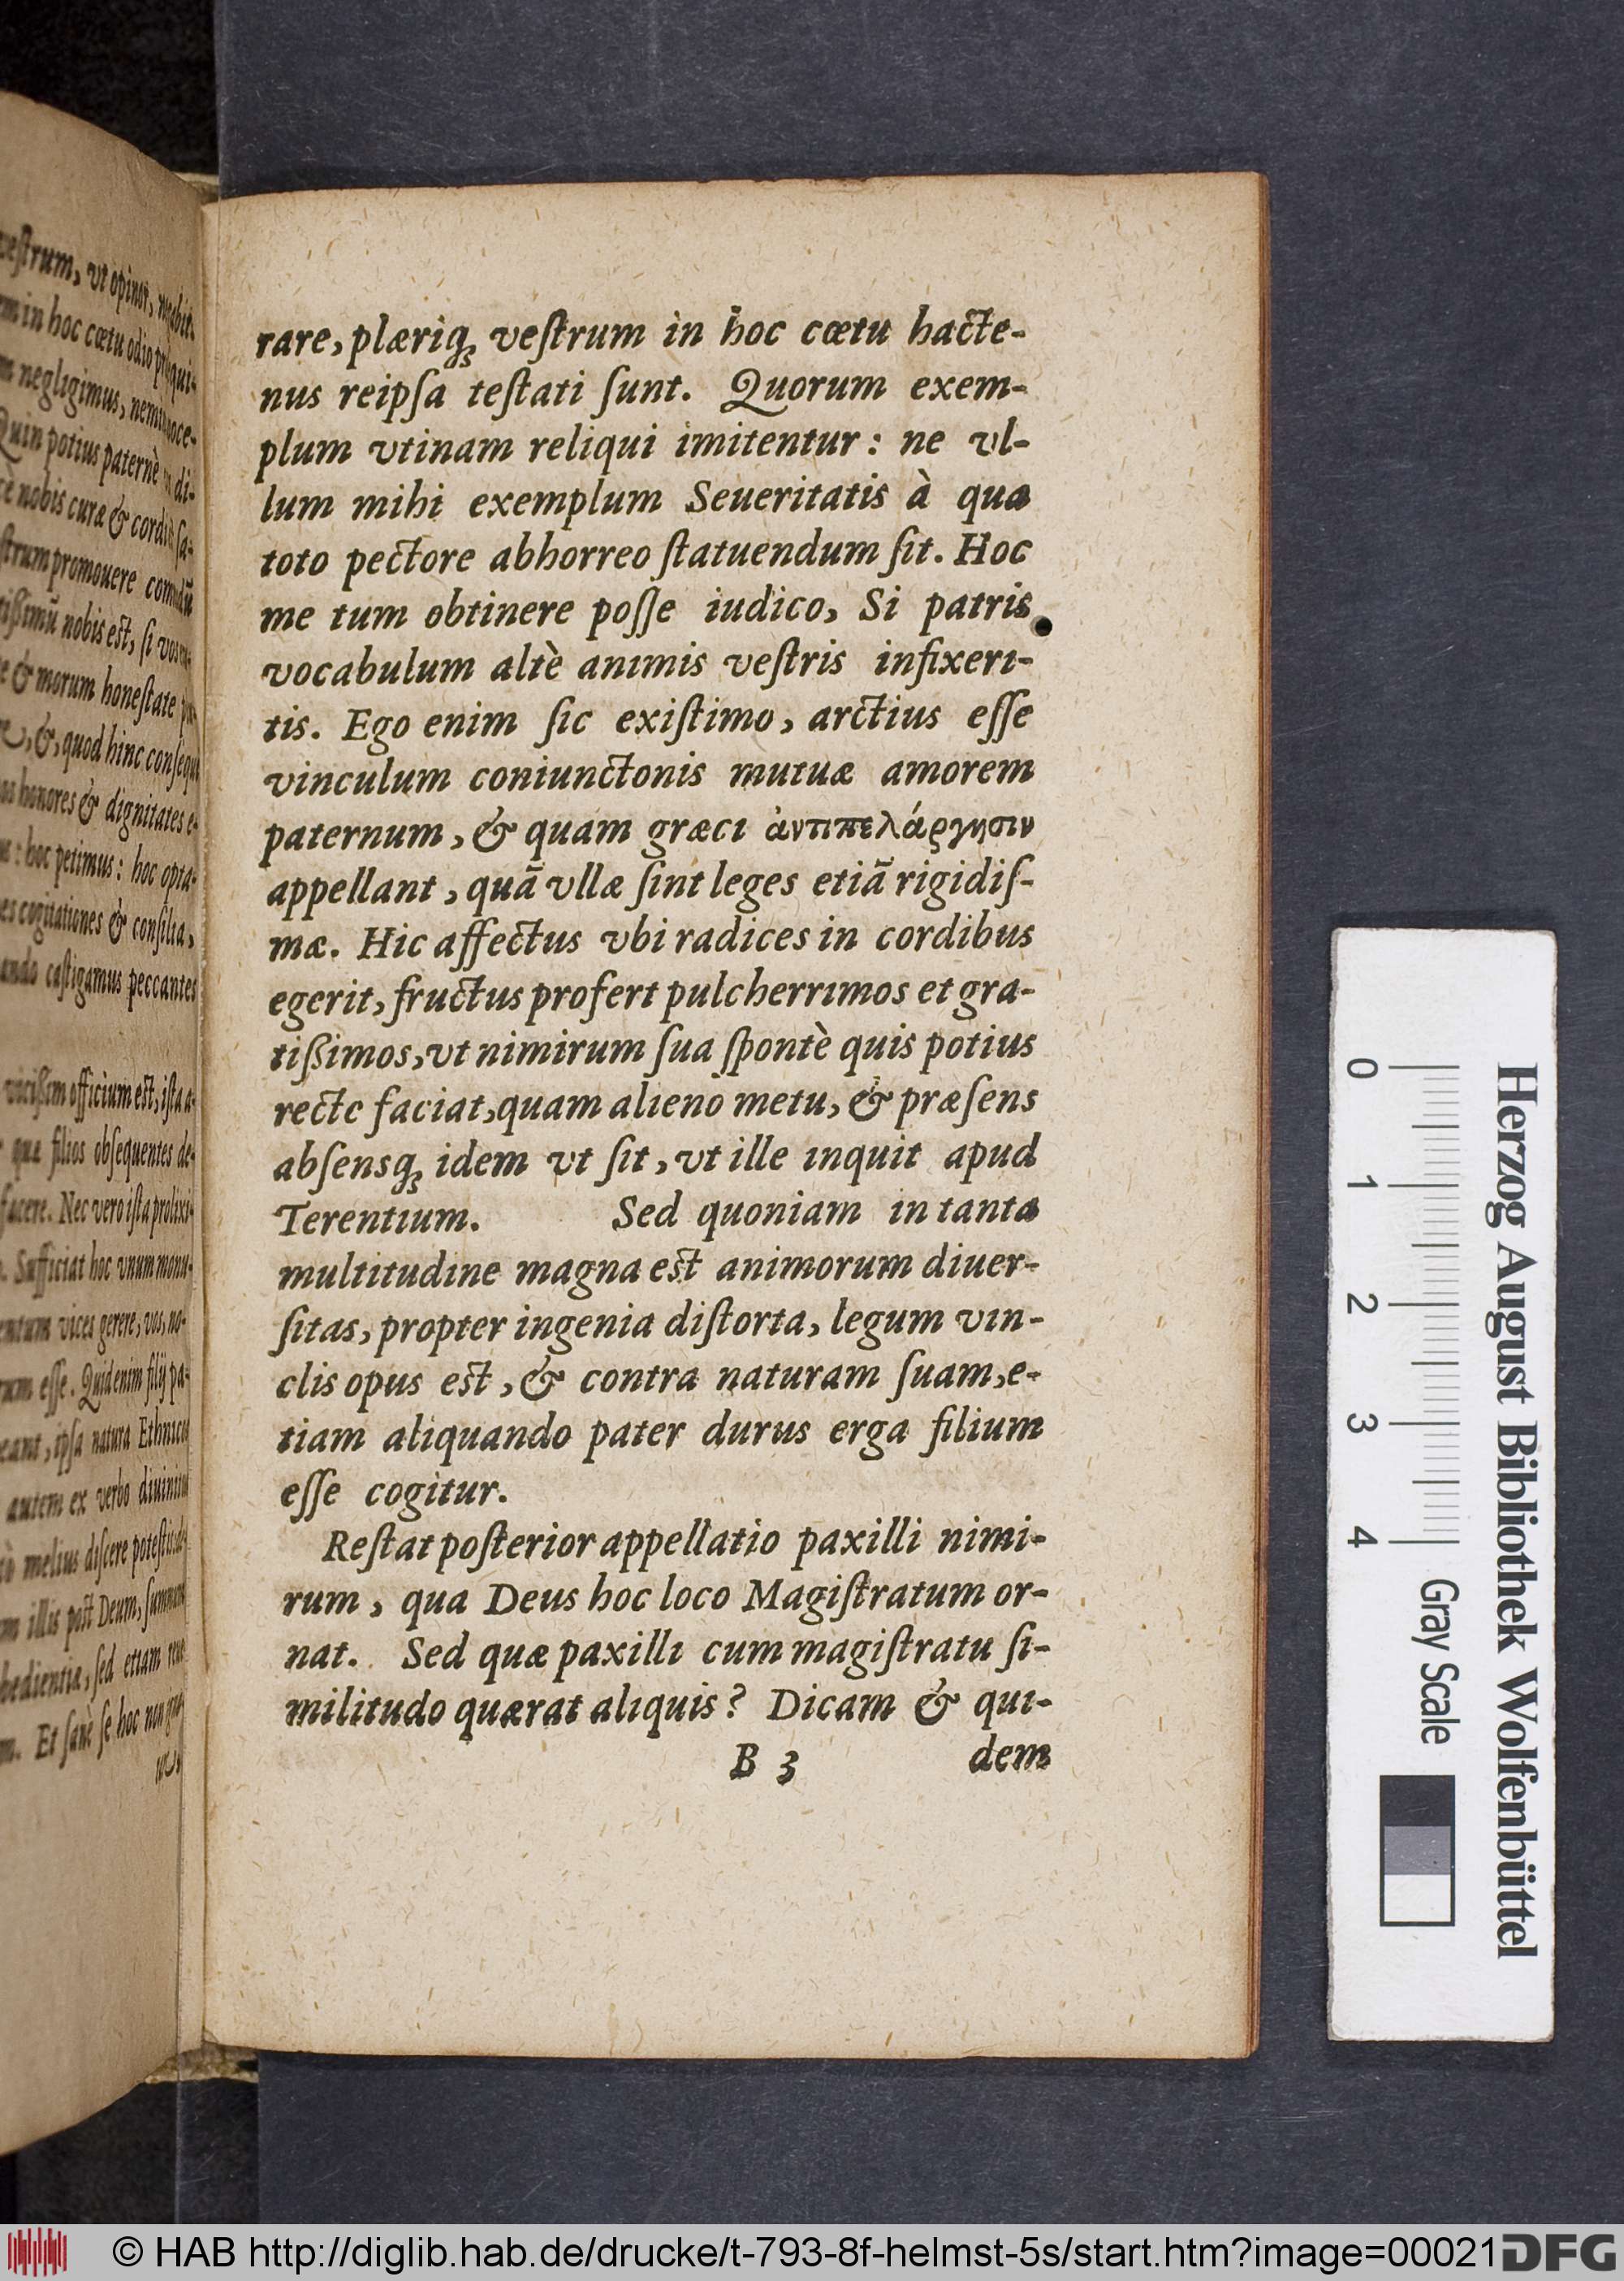 vestrum, vt opinor, negabit.
in hoc cœtu odio
negligimus,
Quin potius paternè
nobis curæ & cordi
promouere
nobis est, si vos
& morum honestate
&, quod hinc
honores & dignitates e-
: hoc petimus: hoc opta-
cogitationes & consilia,
castigamus peccantes
officium est, ista a-
filios obsequentes de-
facere. Nec vero ista prolixi-
Sufficiat hoc vnum
vices gerere, vos, no-
esse. Quid enim filij pa-
ipsa natura
autem ex verbo
melius discere
illis post Deum,
sed etiam
Et sanè se hoc non
rare, plæriq́ʒ veſtrum in hoc cœtu hacte-
nus reipſa teſtati ſunt. Quorum exem-
plum vtinam reliqui imitentur: ne vl-
lum mihi exemplum Seueritatis à qua
toto pectore abhorreo ſtatuendum ſit. Hoc
me tum obtinere poſſe iudico, Si patris
vocabulum altè animis veſtris infixeri-
tis. Ego enim ſic exiſtimo, arctius eſſe
vinculum coniunctonis mutuæ amorem
paternum, & quam græci ἀντιπελάργησιν
appellant, quã vllæ ſint leges etiã rigidiſ-
mæ. Hic affectus vbi radices in cordibus
egerit, fructus profert pulcherrimos et gra-
tißimos, vt nimirum ſua ſpontè quis potius
recte faciat, quam alieno metu, & præſens
abſensq́ʒ idem vt ſit, vt ille inquit apud
Terentium. Sed quoniam in tanta
multitudine magna est animorum diuer-
ſitas, propter ingenia diſtorta, legum vin-
clis opus est, & contra naturam ſuam, e-
tiam aliquando pater durus erga filium
eſſe cogitur.
Reſtat poſterior appellatio paxilli nimi-
rum, qua Deus hoc loco Magiſtratum or-
nat. Sed quæ paxilli cum magiſtratu ſi-
militudo quærat aliquis? Dicam & qui-
B 3 dem
0 1 2 3 4 Gray Scale
Herzog August Bibliothek Wolfenbüttel
© HAB http://diglib.hab.de/drucke/t-793-8f-helmst-5s/start.htm?image=00021 DFG